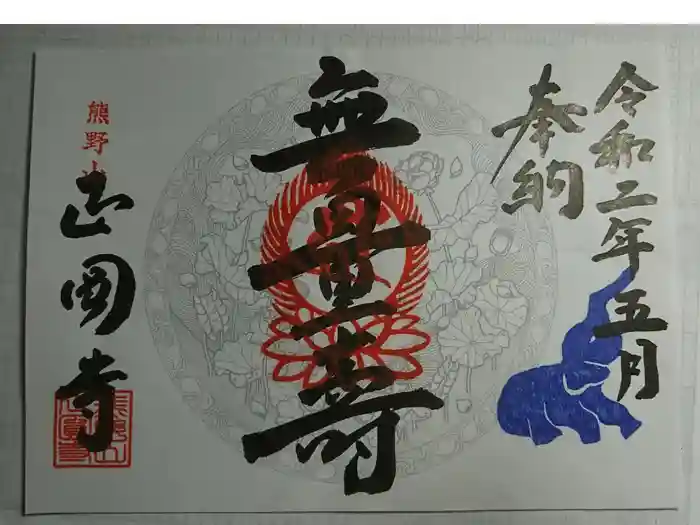 奉納
令和二年五月
無量寿
熊野山
正圓寺